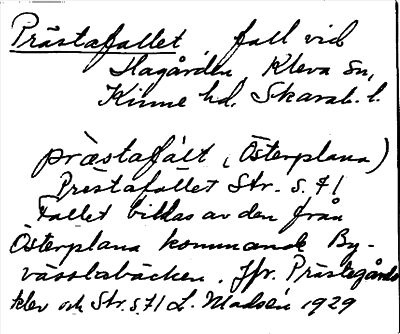 Prästafallet, fall vid
Hagården, Kleva sn,
Kinne hd, Skarab. l.
præstafàlt (Österplana)
Prestafallet Str. s. 71
Fallet bildas av den från
Österplana kommande By-
vässlabäcken. Jfr. Prästegårds
klev och Str. s. 71 L. Madsén 1929